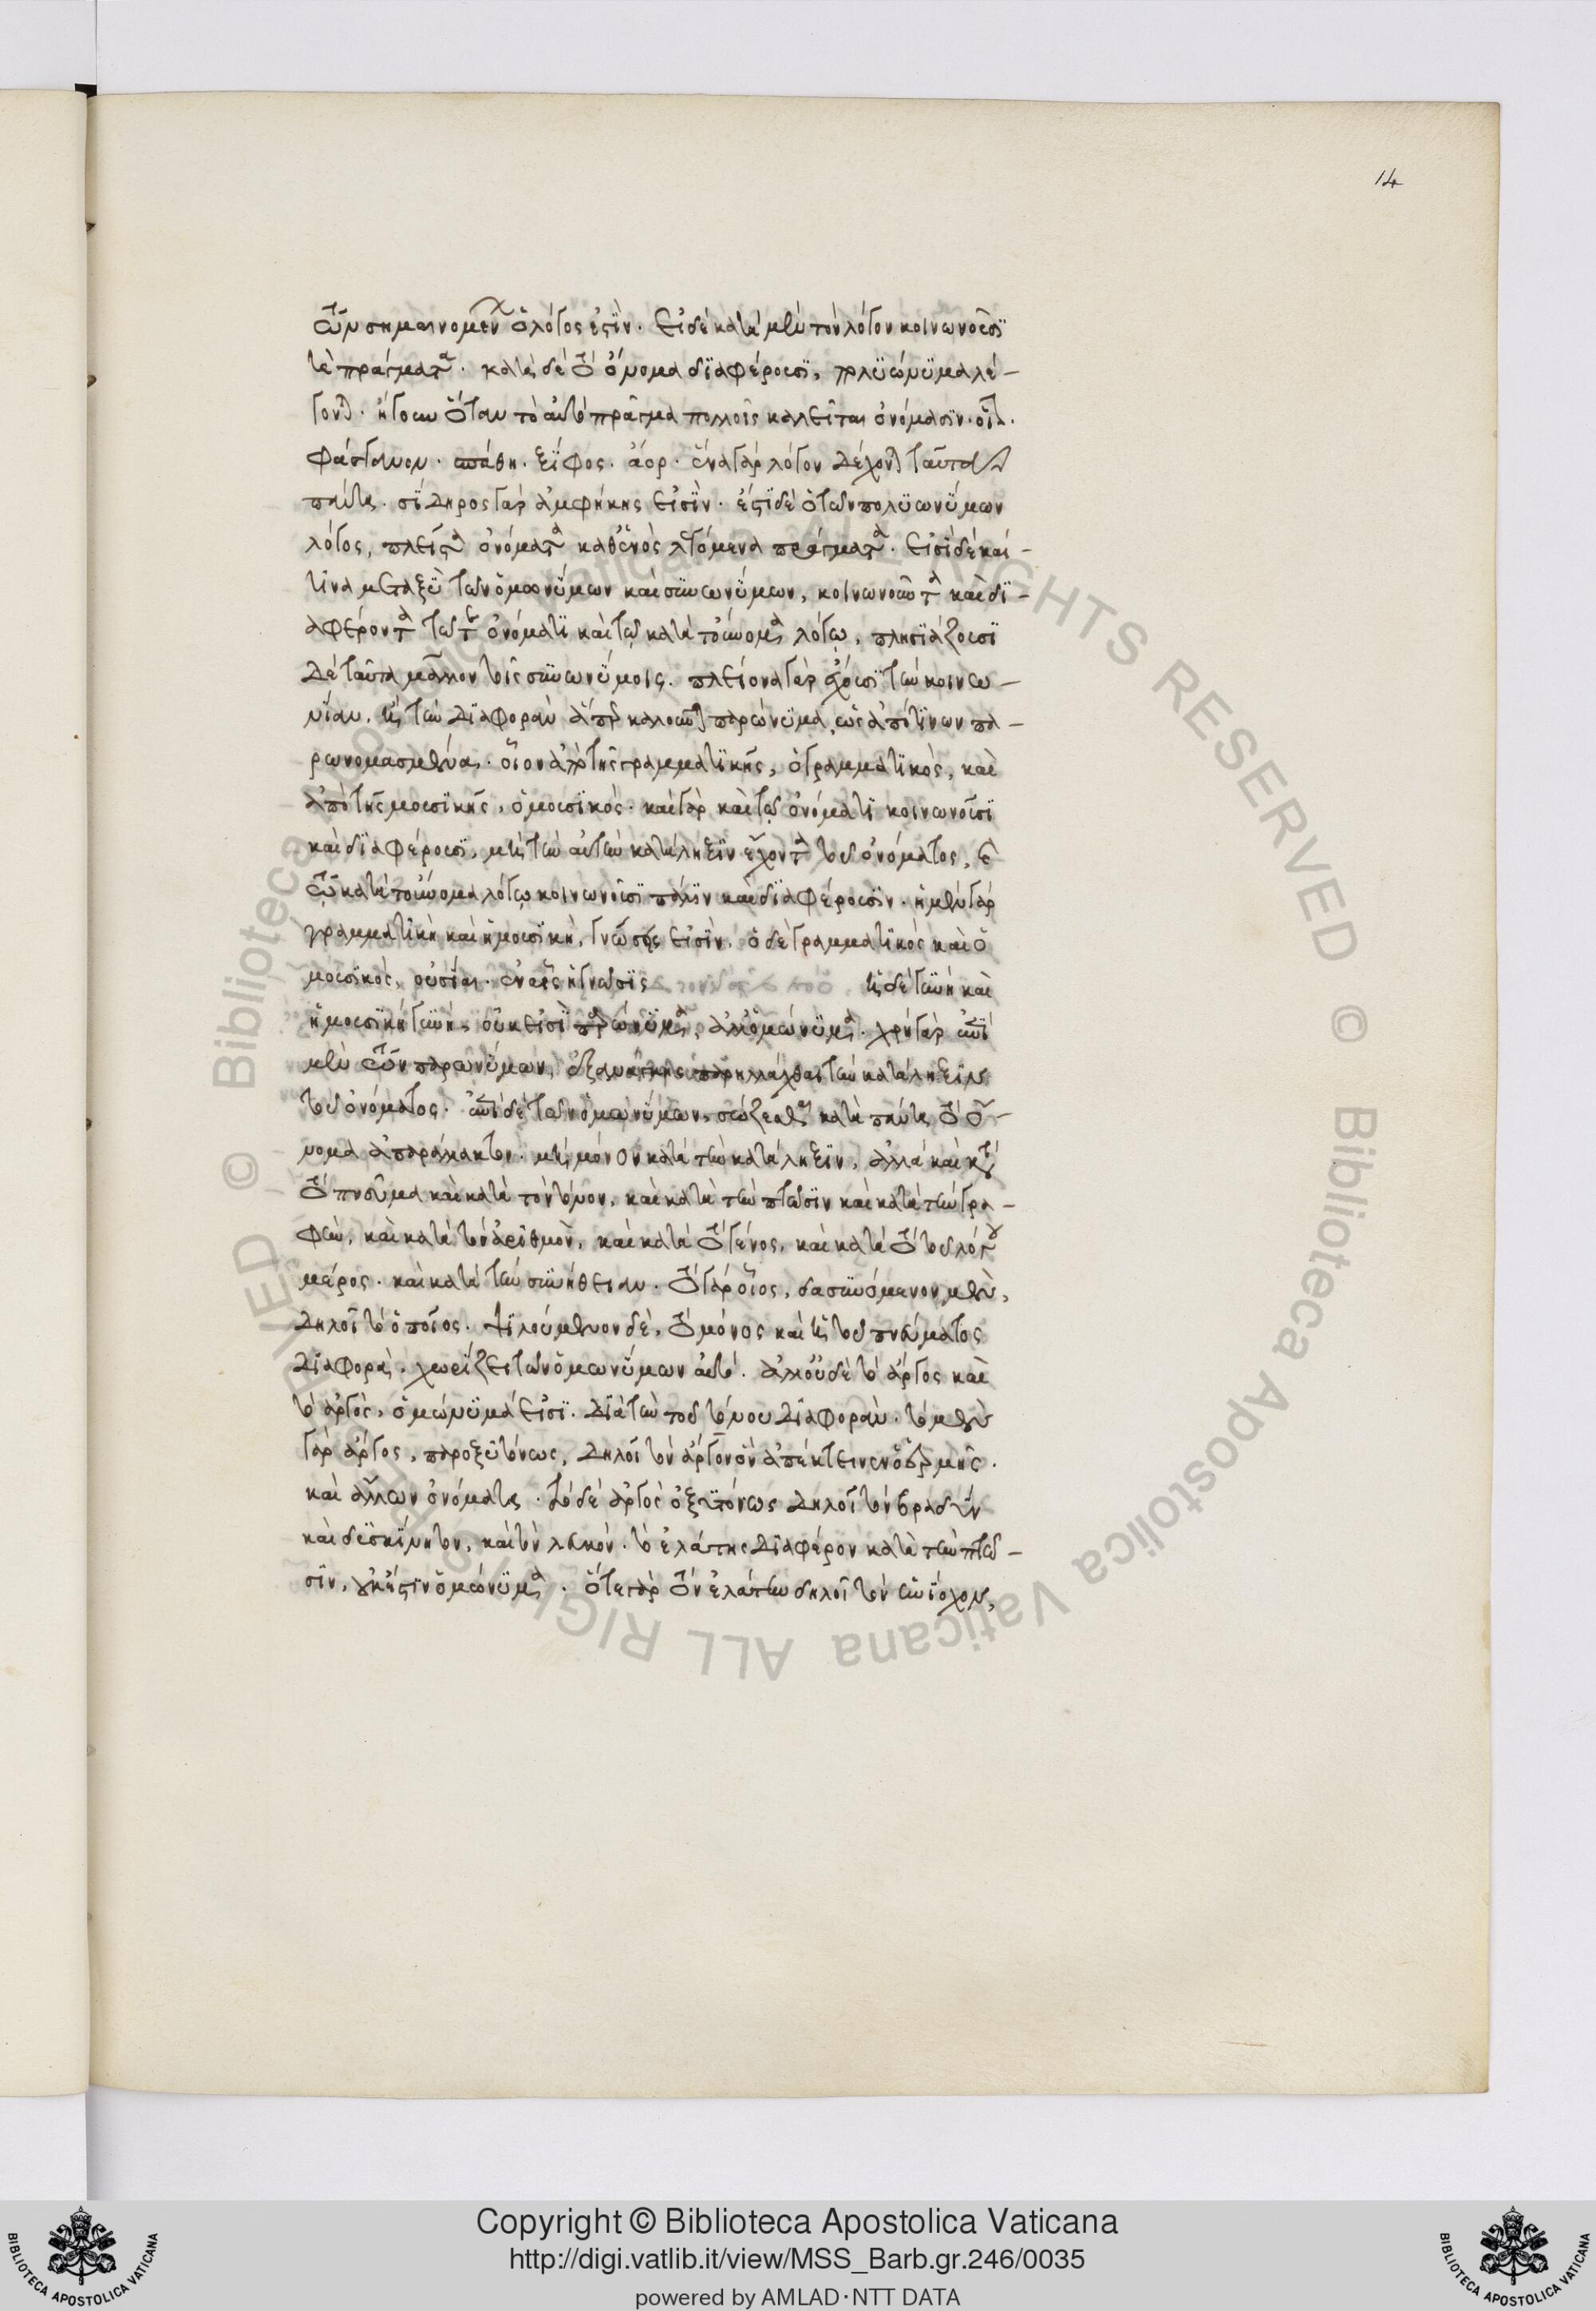 14
τῶν σημαινομένων ὁ λόγος ἐστὶν. εἰ δὲ κατὰ μὲν τὸν λόγον κοινωνοῦσϊ
τὰ πράγματα. κατὰ δὲ τὸ ὄνομα δϊαφέρουσϊ, πολϋώνϋμα λέ-
γονται. ἤγουν ὅταν τὸ αὐτὸ πρᾶγμα πολλοῖς καλεῖται ὀνόμασϊν. οἷον.
φάσγανον. σπάθη. ξίφος. ἄορ. ἕνα γὰρ λόγον δέχονται ταῦτα
πάντα. σίδηρος γὰρ ἀμφήκης εἰσϊν. ἔστϊ δὲ ὁ τῶν πολϋωνϋμων
λόγος, πλεῖστα ὀνόματα καθενὸς λεγόμενα πράγματα. εἰσὶ δὲ καί-
τινα μεταξὺ τῶν ὁμωνϋμων καὶ συνωνϋμων, κοινωνοῦντα καὶ δϊ-
αφέροντα τῷ τε ὀνόματϊ καὶ τῷ κατὰ τοὔνομα λόγῳ, πλησϊάζουσϊ
δὲ ταῦτα μᾶλλον τοῖς συνωνϋμοις. πλείονα γὰρ ἔχουσϊ τὴν κοινω-
νίαν, ἢ τὴν δϊαφορὰν ἅπερ καλοῦνται παρώνϋμα, ὡς ἀπό τϊνων πα-
ρωνομασμένα. οἷον ἀπὸ τῆς γραμματϊκῆς, ὁ γραμματϊκὸς, καὶ
ἀπὸ τῆς μουσϊκῆς, ὁ μουσϊκὸς. καὶ γὰρ καὶ τῷ ὀνόματϊ κοινωνοῦσϊ
καὶ δϊαφέρουσϊ, μὴ τὴν αὐτὴν κατάληξϊν ἔχοντα τοῦ ὀνόματος,
τῷ κατὰ τοὔνομα λόγῳ κοινωνοῦσϊ πάλϊν καὶ δϊαφέρουσϊν. ἡ μὲν γὰρ
γραμματϊκὴ καὶ ἡ μουσϊκὴ, γνώσεις εἰσϊν, ὁ δὲ γραμματϊκὸς καὶ ὁ
μουσϊκὸς, οὐσίαι. ἐν αἷς ἡ γνῶσϊς ἡ δὲ γυνὴ καὶ
ἡ μουσϊκὴ γυνὴ, οὐκ εἰσϊ παρώνϋμα, ἀλλ' ὁμώνϋμα. χρὴ γὰρ ἐπϊ
μὲν τῶν παρωνϋμων, ἐξανάγκης παρηλλάχθαι τὴν κατάληξϊν
τοῦ ὀνόματος. ἐπὶ δὲ τῶν ὁμωνϋμων, σώζεσθαι κατὰ πάντα τὸ ὄ-
νομα ἀπαράλλακτον. μὴ μόνον κατὰ τὴν κατάληξϊν, ἀλλὰ καὶ κατὰ
τὸ πνεῦμα καὶ κατὰ τὸν τόνον, καὶ κατὰ τὴν πτῶσϊν καὶ κατὰ τὴν γρα-
φὴν, καὶ κατὰ τὸν ἀρϊθμὸν, καὶ κατὰ τὸ γένος, καὶ κατὰ τὸ τοῦ λόγου
μέρος. καὶ κατὰ τὴν συνήθειαν. τὸ γὰρ οἷος, δασυνόμενον μὲν,
δηλοῖ τὸ ὁποῖος. ψϊλούμενον δὲ, τὸ μόνος καὶ ἡ τοῦ πνεύματος
δϊαφορὰ, χωρίζει τῶν ὁμωνϋμων αὐτὸ. ἀλλ' οὐδὲ τὸ ἄργος καὶ
τὸ ἀργὸς, ὁμώνϋμά εἰσϊ. δϊὰ τὴν τοῦ τόνου δϊαφορὰν. τὸ μὲν
γὰρ ἄργος, παροξϋτόνως, δηλοῖ τὸν ἄργον ὃν ἀπέκτεινεν ὁ ἑρμῆς.
καὶ ἄλλων ὀνόματα. τὸ δὲ ἀργὸς ὀξϋτόνως δηλοῖ τὸν βραδὺν
καὶ δυσκίνητον, καὶ τὸν λευκόν. τὸ ἐλάτης δϊαφέρον κατὰ τὴν πτῶ-
σϊν, οὐκ ἔστϊν ὁμώνϋμα. ὅτε γὰρ τὸν ἐλάτην δηλοῖ τὸν ἡνίοχον,
Copyright © Biblioteca Apostolica Vaticana
http://digi.vatlib.it/view/MSS_Barb.gr.246/0035
powered by AMLAD·NTT DATA